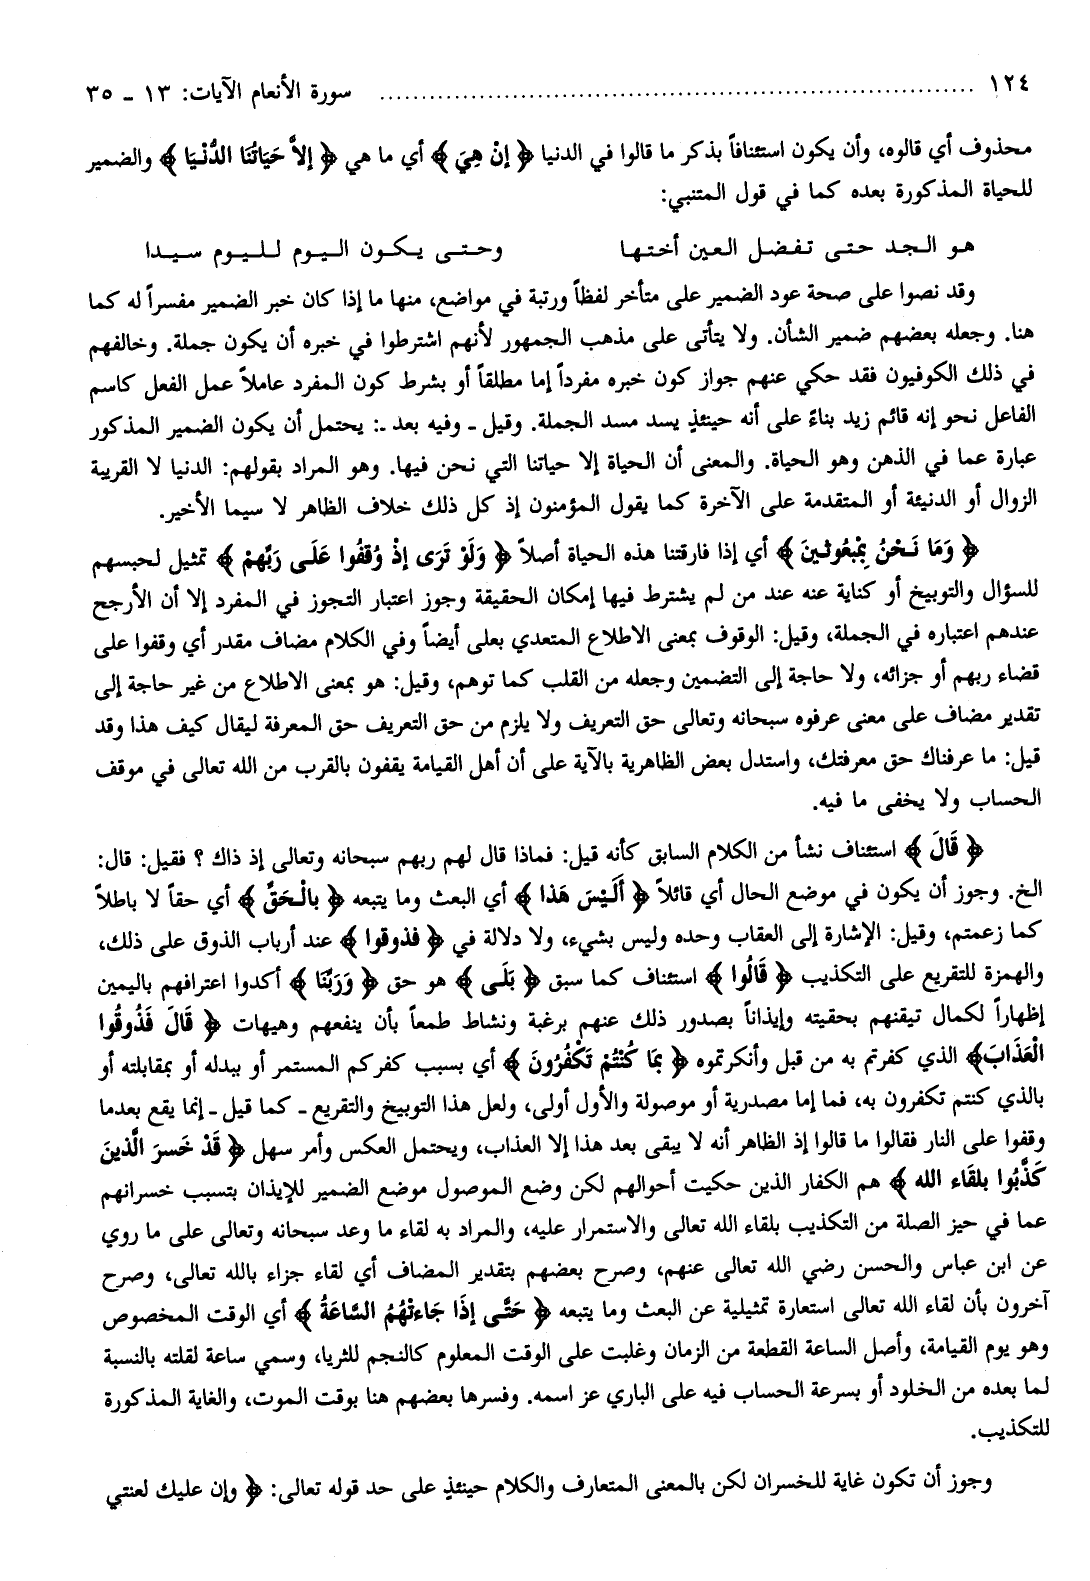 ١٢٤ ........................ سورة الأنعام الآيات: ١٣ ـ ٣٥
محذوف أي قالوه، وأن يكون استئنافاً بذكر ما قالوا في الدنيا ﴿ إنْ هِيَ ﴾ أي ما هي ﴿ إلاَّ حَيَاتُنَا الدُّنْيَا ﴾ والضمير
للحياة المذكورة بعده كما في قول المتنبي:
هو الجد حتى تفضل العين أختها وحتى يكون اليوم لليوم سيدا
وقد نصوا على صحة عود الضمير على متأخر لفظاً ورتبة في مواضع، منها ما إذا كان خبر الضمير مفسراً له كما
هنا. وجعله بعضهم ضمير الشأن. ولا يتأتى على مذهب الجمهور لأنهم اشترطوا في خبره أن يكون جملة. وخالفهم
في ذلك الكوفيون فقد حكي عنهم جواز كون خبره مفرداً إما مطلقاً أو بشرط كون المفرد عاملاً عمل الفعل كاسم
الفاعل نحو إنه قائم زيد بناءً على أنه حينئذٍ يسد مسد الجملة. وقيل ـ وفيه بعد ـ: يحتمل أن يكون الضمير المذكور
عبارة عما في الذهن وهو الحياة. والمعنى أن الحياة إلا حياتنا التي نحن فيها. وهو المراد بقولهم: الدنيا لا القريبة
الزوال أو الدنيئة أو المتقدمة على الآخرة كما يقول المؤمنون إذ كل ذلك خلاف الظاهر لا سيما الأخير.
﴿ وَمَا نَحْنُ بِمَبْعُوثينَ ﴾ أي إذا فارقتنا هذه الحياة أصلاً ﴿ وَلَوْ تَرَى إذْ وُقفُوا عَلَى رَبِّهمْ ﴾ تمثيل لحبسهم
للسؤال والتوبيخ أو كناية عنه عند من لم يشترط فيها إمكان الحقيقة وجوز اعتبار التجوز في المفرد إلا أن الأرجح
عندهم اعتباره في الجملة، وقيل: الوقوف بمعنى الاطلاع المتعدي بعلى أيضاً وفي الكلام مضاف مقدر أي وقفوا على
قضاء ربهم أو جزائه، ولا حاجة إلى التضمين وجعله من القلب كما توهم، وقيل: هو بمعنى الاطلاع من غير حاجة إلى
تقدير مضاف على معنى عرفوه سبحانه وتعالى حق التعريف ولا يلزم من حق التعريف حق المعرفة ليقال كيف هذا وقد
قيل: ما عرفناك حق معرفتك، واستدل بعض الظاهرية بالآية على أن أهل القيامة يقفون بالقرب من الله تعالى في موقف
الحساب ولا يخفى ما فيه.
﴿ قَالَ ﴾ استئناف نشأ من الكلام السابق كأنه قيل: فماذا قال لهم ربهم سبحانه وتعالى إذ ذاك ؟ فقيل: قال:
الخ. وجوز أن يكون في موضع الحال أي قائلاً ﴿ أَلَيْسَ هَذا ﴾ أي البعث وما يتبعه ﴿ بالْحَقِّ ﴾ أي حقاً لا باطلاً
كما زعمتم، وقيل: الإشارة إلى العقاب وحده وليس بشيء، ولا دلالة في ﴿ فذوقوا ﴾ عند أرباب الذوق على ذلك،
والهمزة للتقريع على التكذيب ﴿ قَالُوا ﴾ استئناف كما سبق ﴿ بَلَى ﴾ هو حق ﴿ وَرَبِّنَا ﴾ أكدوا اعترافهم باليمين
إظهاراً لكمال تيقنهم بحقيته وإيذاناً بصدور ذلك عنهم برغبة ونشاط طمعاً بأن ينفعهم وهيهات ﴿ قَالَ فَذُوقُوا
الْعَذَابَ﴾ الذي كفرتم به من قبل وأنكرتموه ﴿ بمَا كُنْتُمْ تَكْفُرُونَ ﴾ أي بسبب كفركم المستمر أو ببدله أو بمقابلته أو
بالذي كنتم تكفرون به، فما إما مصدرية أو موصولة والأول أولى، ولعل هذا التوبيخ والتقريع ـ كما قيل ـ إنما يقع بعدما
وقفوا على النار فقالوا ما قالوا إذ الظاهر أنه لا يبقى بعد هذا إلا العذاب، ويحتمل العكس وأمر سهل ﴿ قَدْ خَسرَ الَّذينَ
كَذَّبُوا بلقَاء الله ﴾ هم الكفار الذين حكيت أحوالهم لكن وضع الموصول موضع الضمير للإيذان بتسبب خسرانهم
عما في حيز الصلة من التكذيب بلقاء الله تعالى والاستمرار عليه، والمراد به لقاء ما وعد سبحانه وتعالى على ما روي
عن ابن عباس والحسن رضي الله تعالى عنهم، وصرح بعضهم بتقدير المضاف أي لقاء جزاء بالله تعالى، وصرح
آخرون بأن لقاء الله تعالى استعارة تمثيلية عن البعث وما يتبعه ﴿ حَتَّى إذَا جَاءتْهُمُ السَّاعَةُ ﴾ أي الوقت المخصوص
وهو يوم القيامة، وأصل الساعة القطعة من الزمان وغلبت على الوقت المعلوم كالنجم للثريا، وسمي ساعة لقلته بالنسبة
لما بعده من الخلود أو بسرعة الحساب فيه على الباري عز اسمه. وفسرها بعضهم هنا بوقت الموت، والغاية المذكورة
للتكذيب.
وجوز أن تكون غاية للخسران لكن بالمعنى المتعارف والكلام حينئذٍ على حد قوله تعالى: ﴿ وإن عليك لعنتي